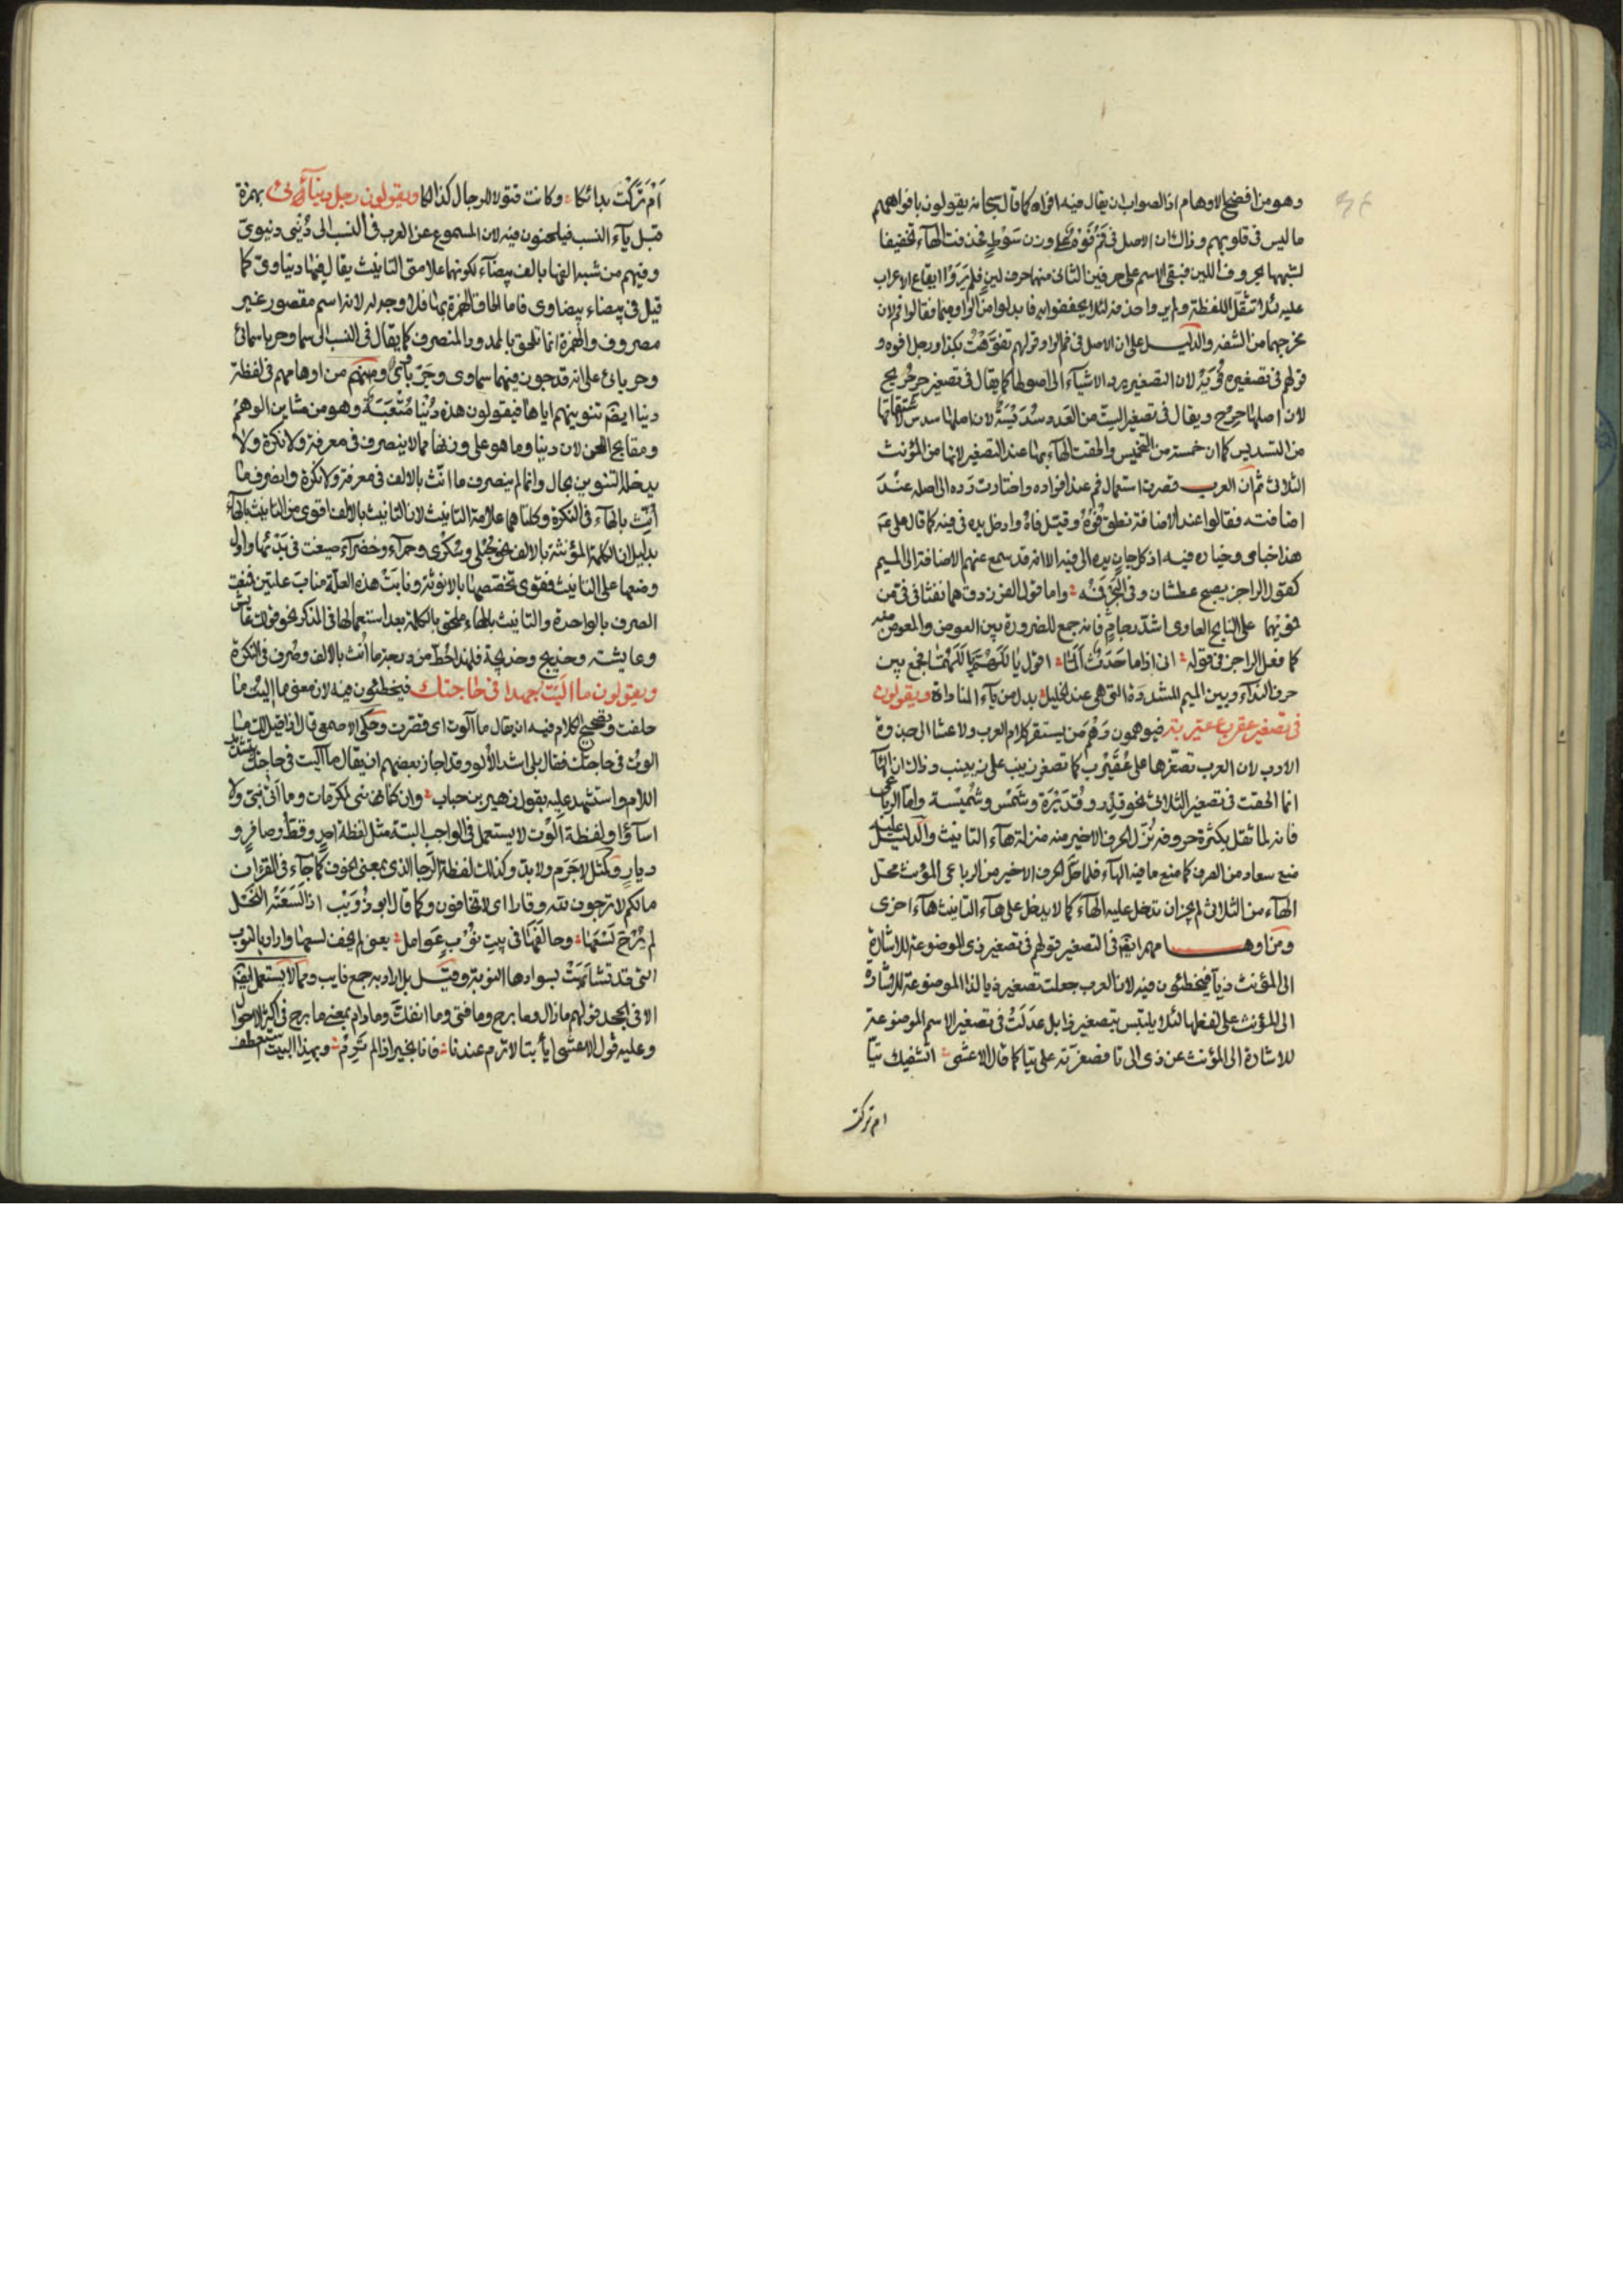 وهو من افضح الاوهام اذ الصواب ان يقال فيه افواه كما قال سبحانه يقولون بافواههم
ما ليس في قلوبهم وذاك ان الاصل في فم فوه على وزن سوط فحذفت الهآء تخفيفا
لشبهها بحروف اللين فبقي الاسم على حرفين الثاني منهما حرف لين فلم يروا ايقاع الاعراب
عليه لئلا تثقل اللفظة ولم يروا حذفه لئلا يجحفوا به فابدلوا من الواو ميما فقالوا فم لان
مخرجهما من الشفه والدليل على ان الاصل في فم الواو قولهم تفوهت بكذا ورجل افوه و
قولهم في تصغيره فويه لان التصغير يرد الاشيآء الى اصولها كما يقال في تصغير حر حريح
لان اصلها حرح ويقال في تصغير الست من العدد سديسة لان اصلها سدس لاشتقاقها
من التسديس كما ان خمسة من التخميس والحقت الهآء بها عند التصغير لانها من المؤنث
الثلاثى ثم ان العرب قصرت استعمال فم عند افراده واختارت رده الى اصله عند
اضافته فقالوا عند الاضافة نطق فوه وقبل فاه وادخل يده في فيه كما قال على ع
هذا جناي وخياره فيه اذ كل جان يده الى فيه الا انه قد سمع عنهم الاضافة الى الميم
كقول الراجز يصبح عطشان وفى البحر فمه واما قول الفرزدق هما نفثا في في من
فمويهما على النابح العاوى اشد رجام فانه جمع للضرورة بين العوض والمعوض منه
كما فعل الراجز في قوله انى اذا ما حدث الما اقول يا اللهم يا اللهما فجمع بين
حرف الندآء وبين الميم المشددة التى هى عند الخليل بدل من يآء المناداة ويقولون
في تصغير عقرب عقيربة فيوهمون وهم من لم يستقر كلام العرب ولا عشا الى جذوة
الادب لان العرب تصغرها على عقيرب كما تصغر زينب على زيينب وذاك ان الهآء
انما الحقت في تصغير الثلاثى نحو قدر وقديرة وشمس وشميسة واما الرباعى
فانه لما ثقل بكثرة حروفه نزل الحرف الاخير منه منزلة هآء التانيث والدليل عليه
منع سعاد من الصرف كما منع ما فيه الهآء فلما حل الحرف الاخير من الرباعى المؤنث محل
الهآء من الثلاثى لم يجز ان تدخل عليه الهآء كما لا يدخل على هآء التانيث هآء اخرى
ومن اوهامهم ايضا فى التصغير قولهم فى تصغير ذى الموضوعة للاشارة
الى المؤنث ذيا فيخطئون فيه لان العرب جعلت تصغير ذيا لذا الموضوعة للاشارة
الى المؤنث على لفظها لئلا يلتبس بتصغير ذا بل عدلت فى تصغير الاسم الموضوعة
للاشارة الى المؤنث عن ذى الى تا فصغرته على تيا كما قال الاعشى اتشفيك تيا
ام تركت
ام تركت بدائكا وكانت قتولا للرجال كذالكا ويقولون رجل دنيآئى بهمزة
قبل يآء النسب فيلحنون فيه لان المسموع عن العرب فى النسب الى دنيى دنيوى
وفيهم من شبه الفها بالف بيضآء لكونهما علامتى التانيث يقال فيها دنياوى كما
قيل فى بيضاء بيضاوى فاما الحاق الهمزة بها فلا وجه له لانه اسم مقصور غير
مصروف والهمزة انما تلحق بالممدود المنصرف كما يقال فى النسب الى سما وحربا سمائى
وحربائى على انه قد جوز فيهما سماوى وحرباوى ومنهم من اوهامهم فى لفظة
دنيا ايضا تنوينهم اياها فيقولون هذه دنيا متعبة وهو من مشاين الوهم
ومقابح اللحن لان دنيا وما هو على وزنها مما لا ينصرف فى معرفة ولا نكرة ولا
يدخله التنوين بحال وانما لم ينصرف ما انث بالالف فى معرفة ولا نكرة وانصرف ما
انث بالهآء فى النكرة وكلتاهما علامة التانيث لان التانيث بالالف اقوى من التانيث بالهآء
بدليل ان الكلمة المؤنثة بالالف نحو حبلى وسكرى وحمرآء وخضرآء صيغت فى بدئها واول
وضعها على التانيث فقوى تخصصها بالانوثة ونابت هذه العلة مناب علتين فمنعت
الصرف بالواحدة والتانيث بالهاء ملحق بالكلمة بعد استعمالها فى المذكر نحو قولك عائش
وعايشة وخديج وخديجة فلهذا حط من درجة ما انث بالالف وصرف فى النكرة
ويقولون ما اليت جهدا فى حاجتك فيخطئون فيه لان معنى ما اليت ما
حلفت وتصحيح الكلام فيه ان يقال ما آلوت اى قصرت وحكى الاصمعى قال اذا قيل لك ما
الوت فى حاجتك فقال بلى اشد الألو وقد اجاز بعضهم ان يقال ما اليت فى حاجتك بتشديد
اللام واستشهد عليه بقول زهير بن جناب وان كنائنى لمكرمات وما الى بنى ولا
اسآؤا ولفظة الوت لا يستعمل فى الواجب البتة مثل لفظة احد وقط وصافر و
ديار وكمثل لا جرم ولا بد وكذلك لفظة الرجا الذى بمعنى الخوف كما جآء فى القران
مالكم لا ترجون لله وقارا اى لا تخافون وكما قال ابو ذؤيب اذا لسعته النحل
لم يرج لسعها وحالفها فى بيت نوب عوامل يعنى لم يخف لسعها واراد بالنوب
التى قد تشابهت بسوادها النوبة وقيل بل اراد به جمع نايب ومما لا يستعمل ايضا
الا فى الجحد قولهم ما زال وما برح وما فتى وما انفك وما دام بمعنى ما برح فى اكثر الاحوال
وعليه قول الاعشى ايا ابتا لا ترم عندنا فانا بخير اذا لم ترم وبهذا البيت استعطف